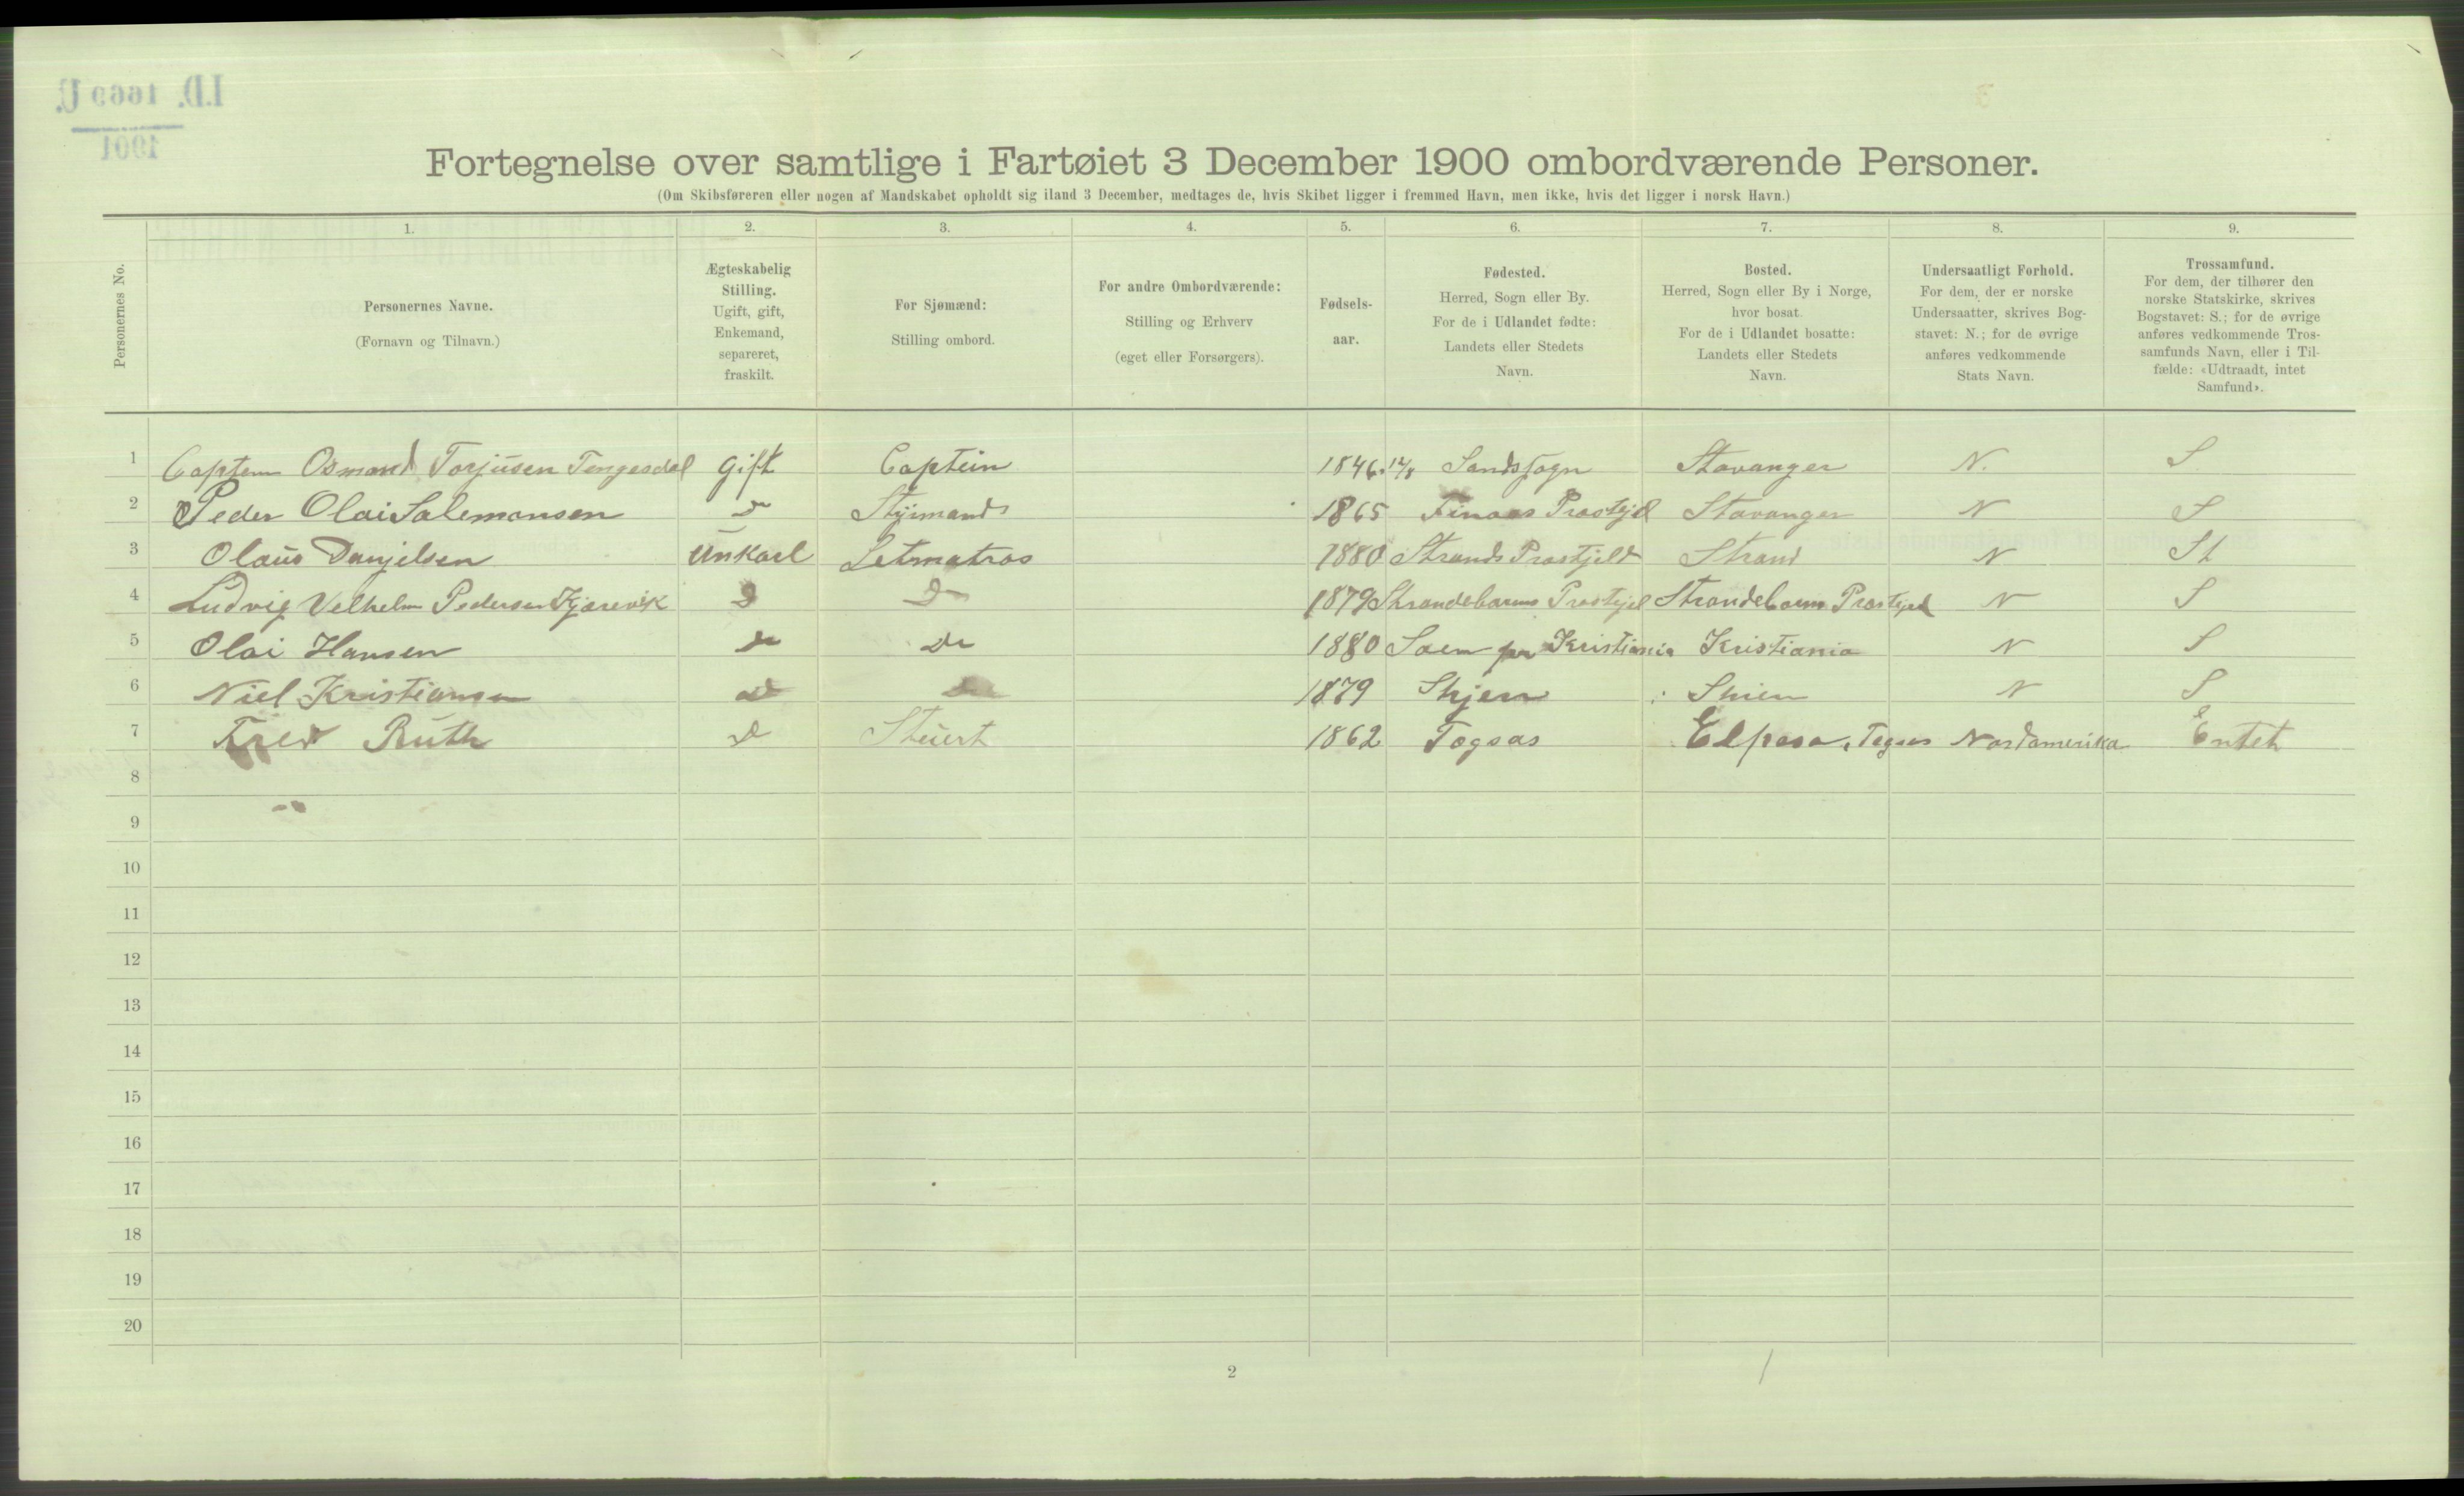 Fortegnelse over samtlige i Fartøiet 3 December 1900 ombordværende Personer.
(Om Skibsføreren eller nogen af Mandskabet opholdt sig iland 3 December, medtages de, hvis Skibet ligger i fremmed Havn, men ikke, hvis det ligger i norsk Havn.)
Personernes No.
1. 2. 3. 4. 5. 6. 7. 8. 9.
Personernes Navne.
(Fornavn og Tilnavn.)
Ægteskabelig
Stilling.
Ugift, gift,
Enkemand,
separeret,
fraskilt.
For Sjømænd:
Stilling ombord.
For andre Ombordværende:
Stilling og Erhverv
(eget eller Forsørgers).
Fødsels-
aar.
Fødested.
Herred, Sogn eller By.
For de i Udlandet fødte:
Landets eller Stedets
Navn.
Bosted.
Herred, Sogn eller By i Norge,
hvor bosat.
For de i Udlandet bosatte:
Landets eller Stedets
Navn.
Undersaatligt Forhold.
For dem, der er norske
Undersaatter, skrives Bog-
stavet: N.; for de øvrige
anføres vedkommende
Stats Navn.
Trossamfund.
For dem, der tilhører den
norske Statskirke, skrives
Bogstavet: S.; for de øvrige
anføres vedkommende Tros-
samfunds Navn, eller i Til-
fælde: «Udtraadt, intet
Samfund».
1 Osmond Torjusen Tengesdal Gift Captein 1846 12/8 Sandssogn Stavanger N. S
2 Peder Olai Salemonsen Do Styrmand 1865 Finaas Prastjil Stavanger N S
3 Olaus Danjelsen Unkarl Letmatros 1880 Strands Prastjeld Strand N St
4 Ludvig Velhelm Pedersen Kjærevik D Do 1879 Strandebarms Prastjel Strandebarm Prastjel N S
5 Olai Hansen Do Do 1880 pr Kristiania Kristiania N S
6 Niel Kristiansen Do Do 1879 Skjem Skien N S
7 Fred Ruth Do Stuert 1862 Togsas Elpaso, Tegsas Nordamerika Entet
8
9
10
11
12
13
14
15
16
17
18
19
20
2